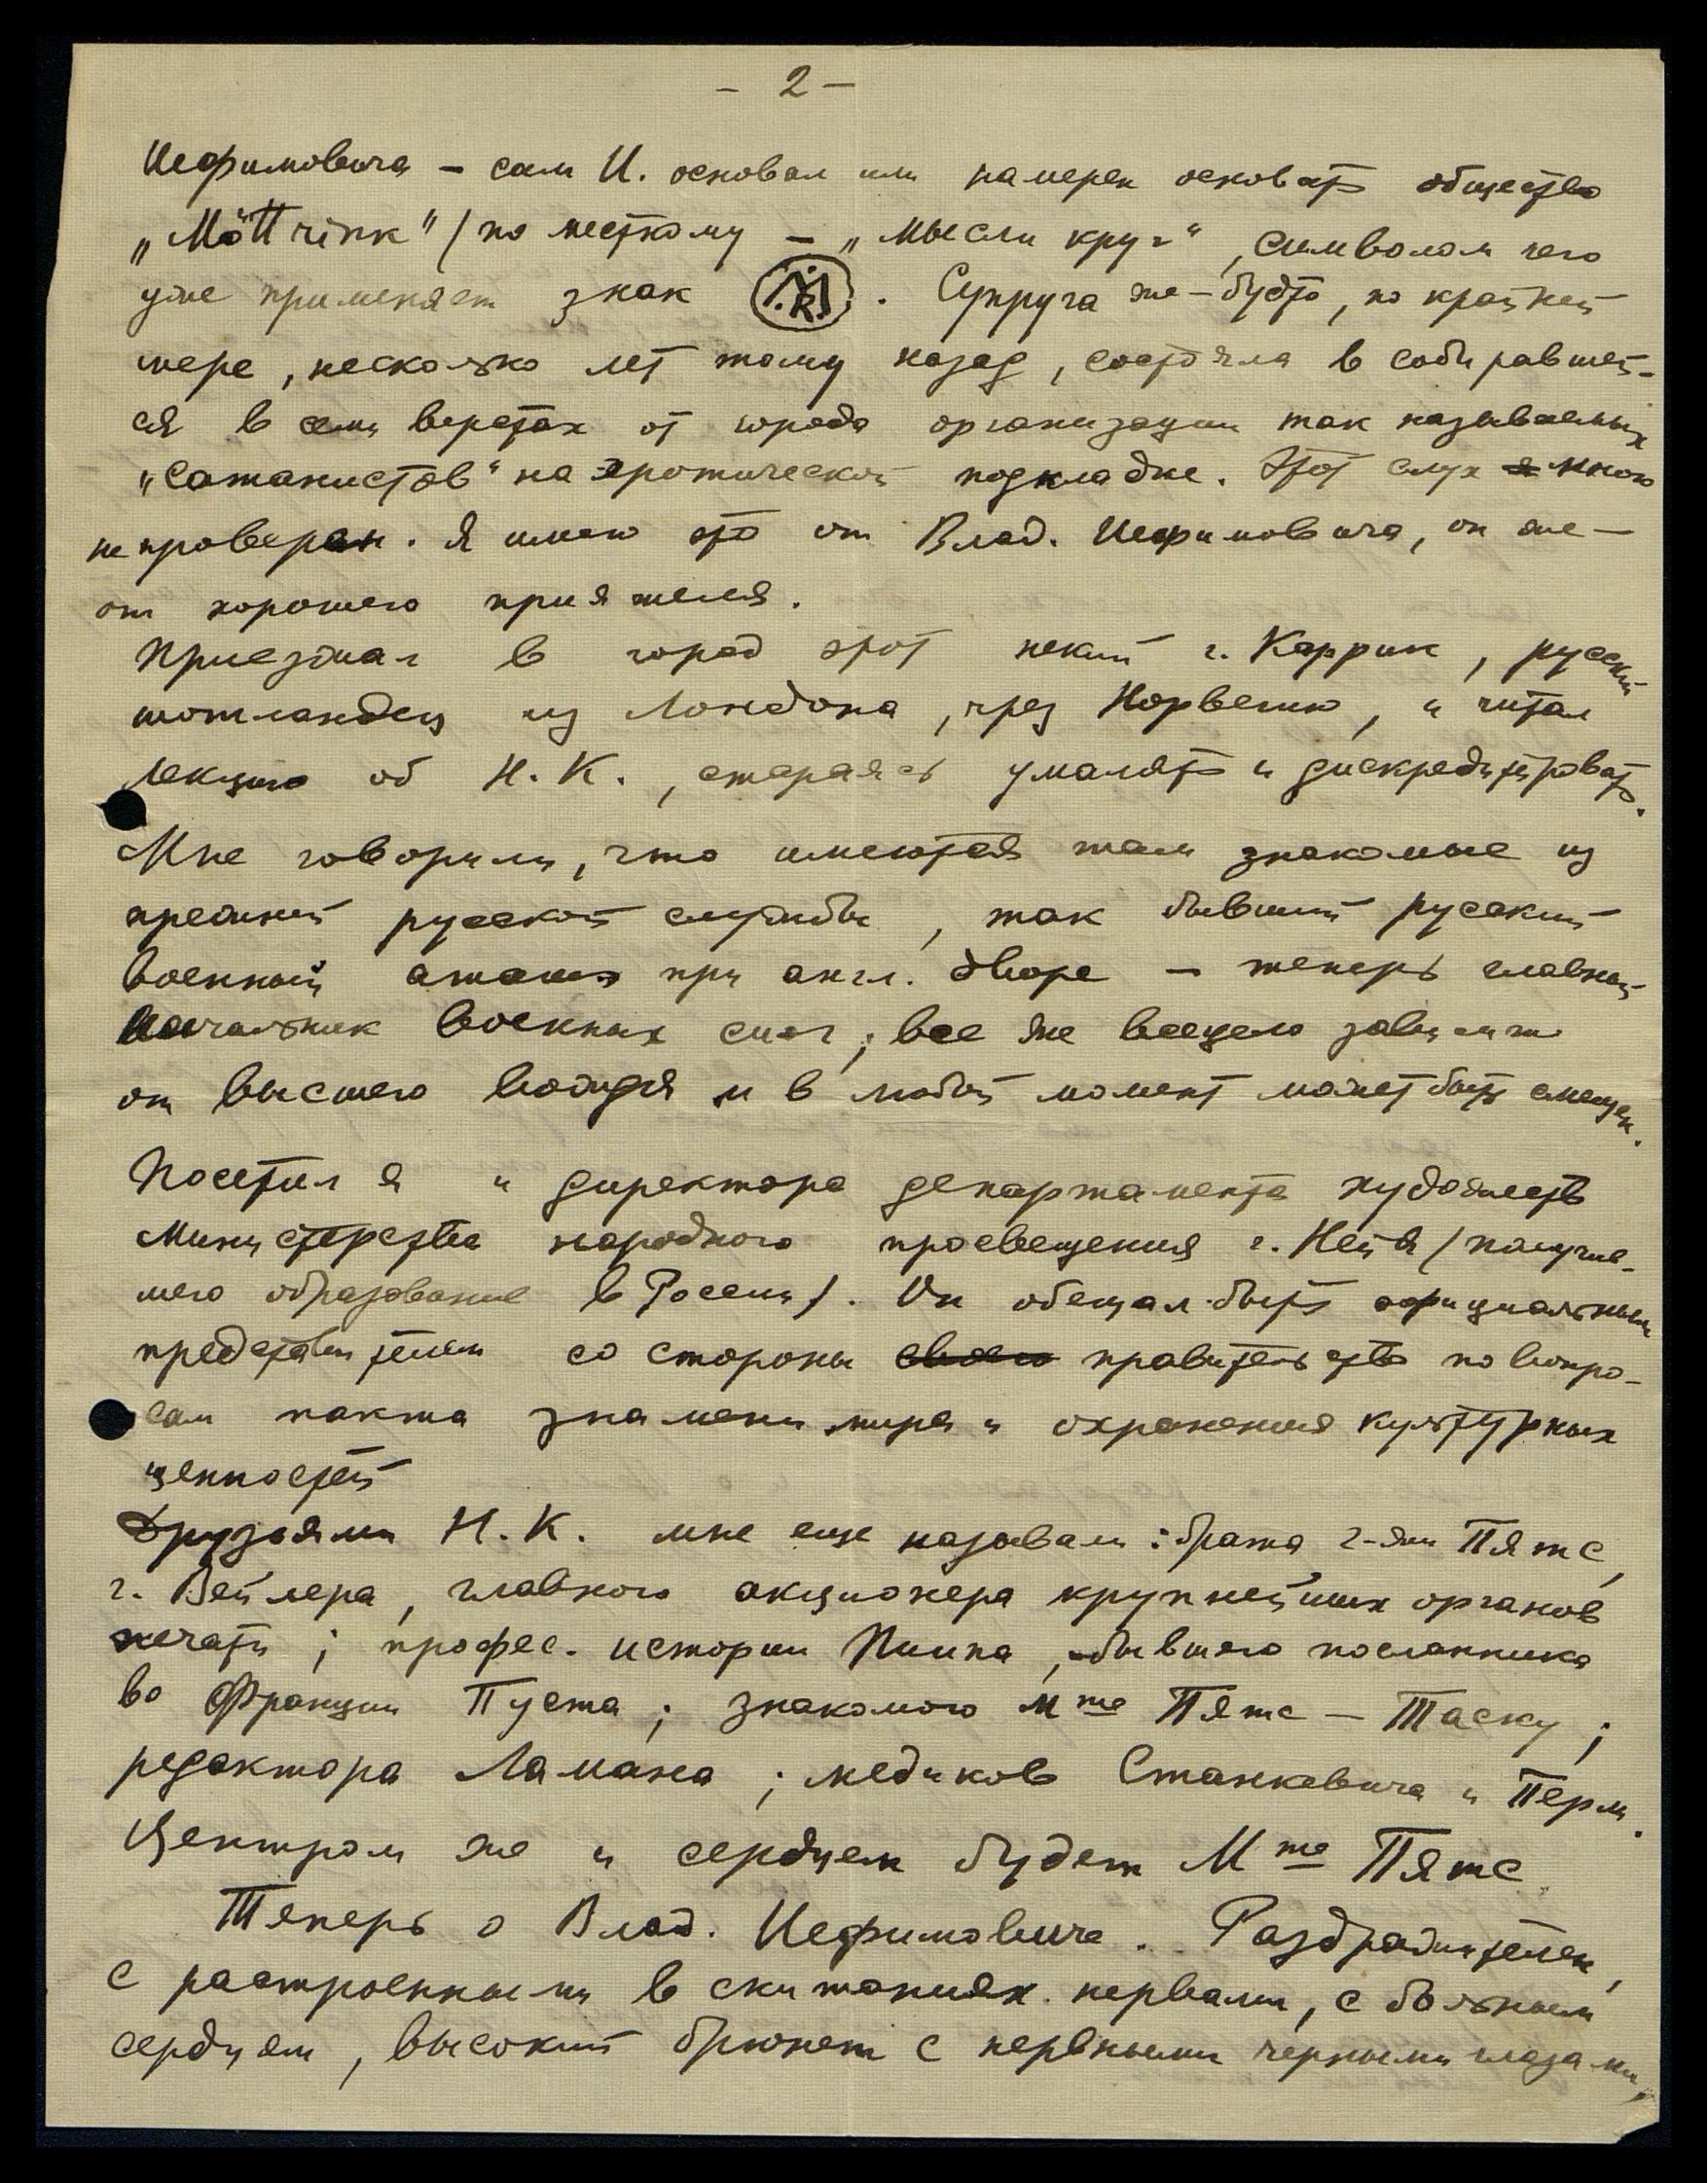 - 2 -
Иефимовича - сам И. основал или намерен основать общество
„Mõttrink" / по местному - „мысли круг", символом чего
уже применяет знак MR. Супруга же - будто, по крайней
мере, несколько лет тому назад, состояла в собиравшей-
ся в семи верстах от города организации так называемых
„сатанистов" на эротической подкладке. Этот слух мною
не проверен. Я имею это от Влад. Иефимовича, он же -
от хорошего приятеля.
Приезжал в город этот некий г. Каррик, русский
шотландец из Лондона, чрез Норвегию, и читал
лекцию об Н.К., стараясь умалять и дискредитировать.
Мне говорили, что имеются там знакомые из
прежней русской службы, так бывший русский
военный аташэ при англ. дворе - теперь главный
начальник военных сил; все же всецело зависит
от высшего вождя и в любой момент может быть смещен.
Посетил я и директора департамента художеств
Министерства народного просвещения г. Нейя / получив-
шего образование в России /. Он обещал быть официальным
представителем со стороны своего правительства по вопро-
сам пакта знамени мира и охранения культурных
ценностей
Друзьями Н.К. мне еще называли: брата г-жи Пятс,
г. Вейлера, главного акционера крупнейших органов
печати; профес. истории Пийпа, бывшего посланника
во Франции Пуста; знакомого Mme Пятс - Таску;
редактора Ламана; медиков Станкевича и Перли.
Центром же и сердцем будет Mme Пятс.
Теперь о Влад. Иефимовиче. Раздражителен,
с растроенными в скитаниях нервами, с больным
сердцем, высокий брюнет с нервными черными глазами,